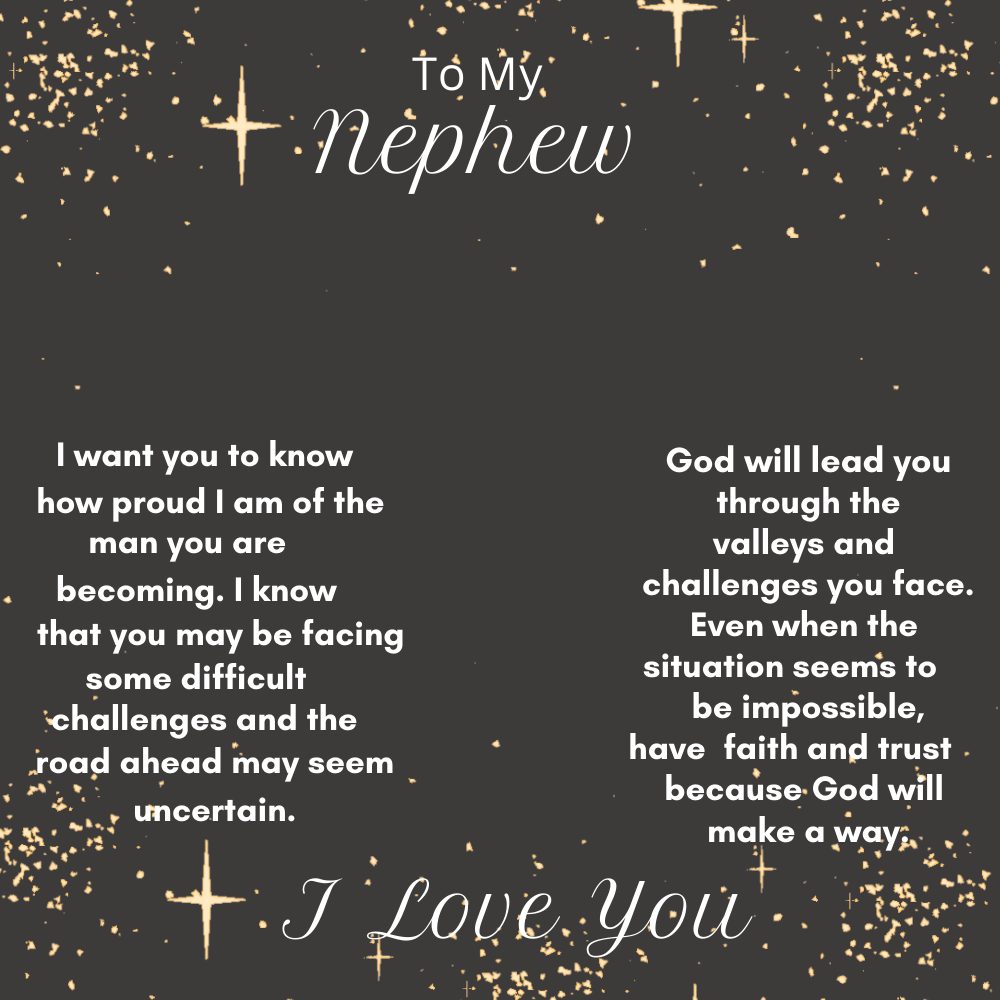 To My
Nephew
I want you to know
how proud I am of the
man you are
becoming. I know
that you may be facing
some difficult
challenges and the
road ahead may seem
uncertain.
God will lead you
through the
valleys and
challenges you face.
Even when the
situation seems to
be impossible,
have faith and trust
because God will
make a way.
I Love You